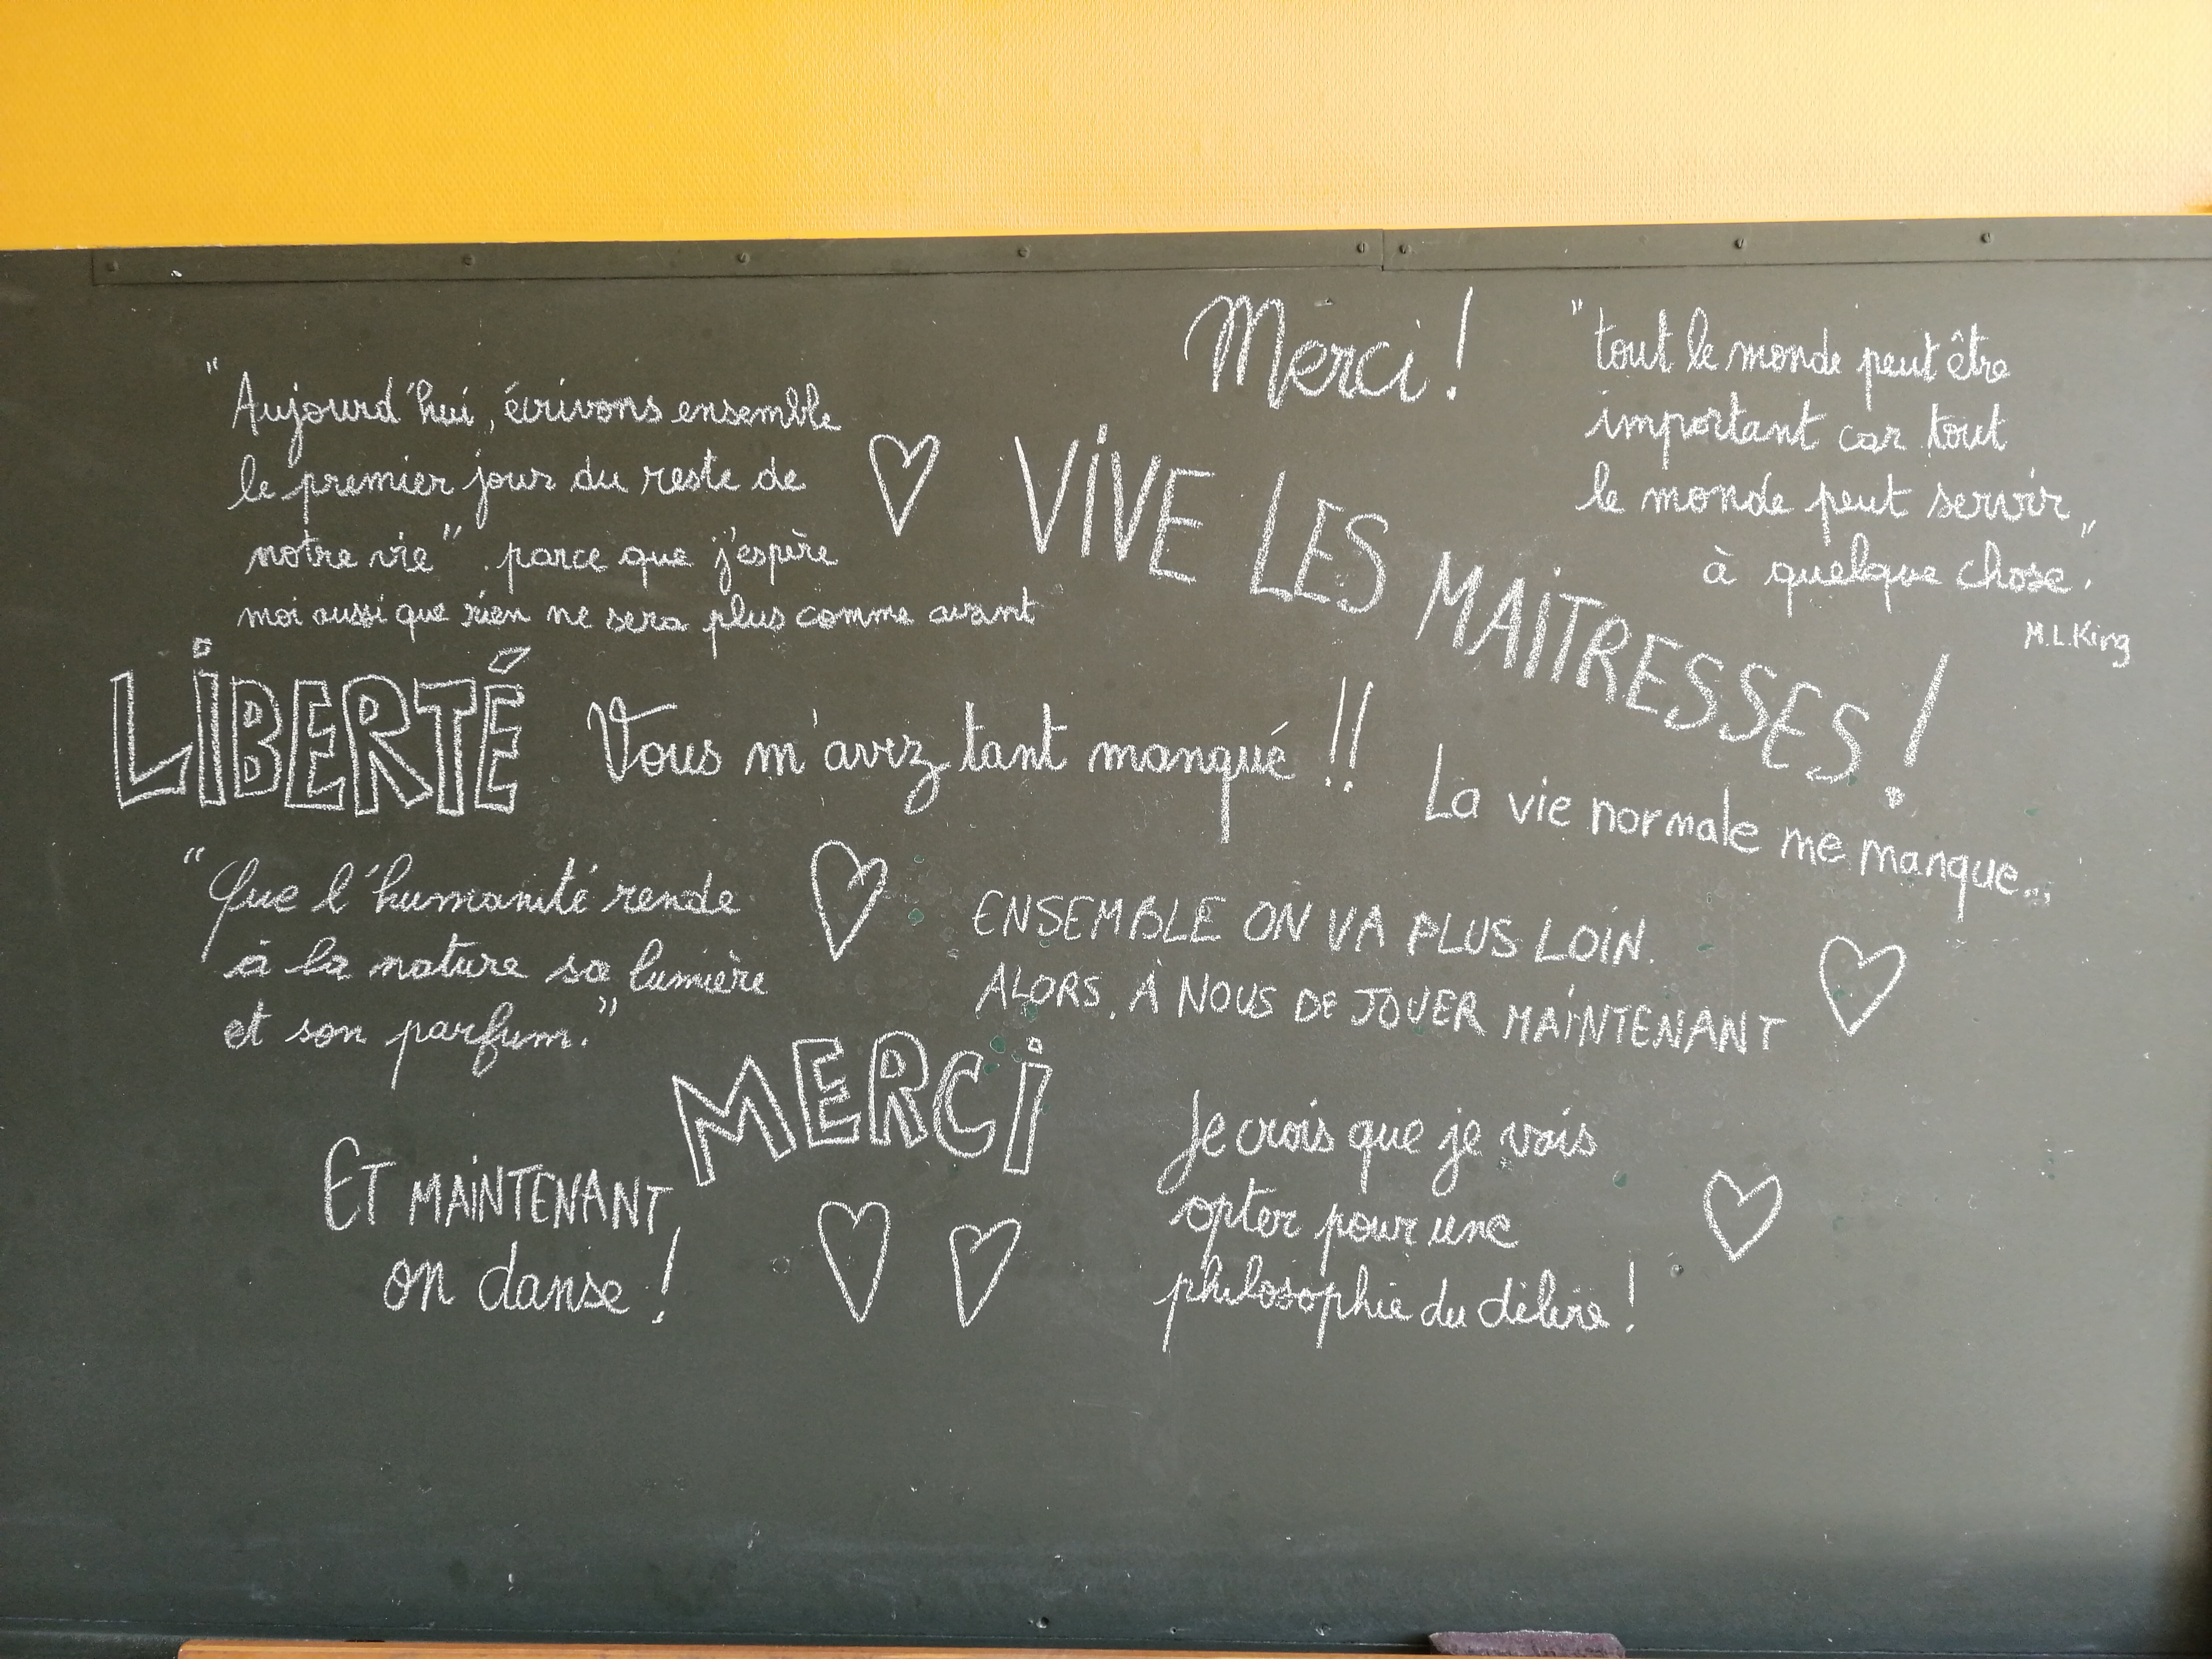 "Aujourd'hui, écrivons ensemble
le premier jour du reste de
notre vie". parce que j'espère
moi aussi que rien ne sera plus comme avant
Merci !
"tout le monde peut être
important car tout
le monde peut servir
à quelque chose."
M.L.King
VIVE LES MAITRESSES !
LIBERTÉ
Vous m'avez tant manqué !!
La vie normale me manque...
"Que l'humanité rende
à la nature sa lumière
et son parfum."
ENSEMBLE ON VA PLUS LOIN.
ALORS, À NOUS DE JOUER MAINTENANT
MERCI
ET MAINTENANT
on danse !
Je crois que je vais
opter pour une
philosophie du délire !